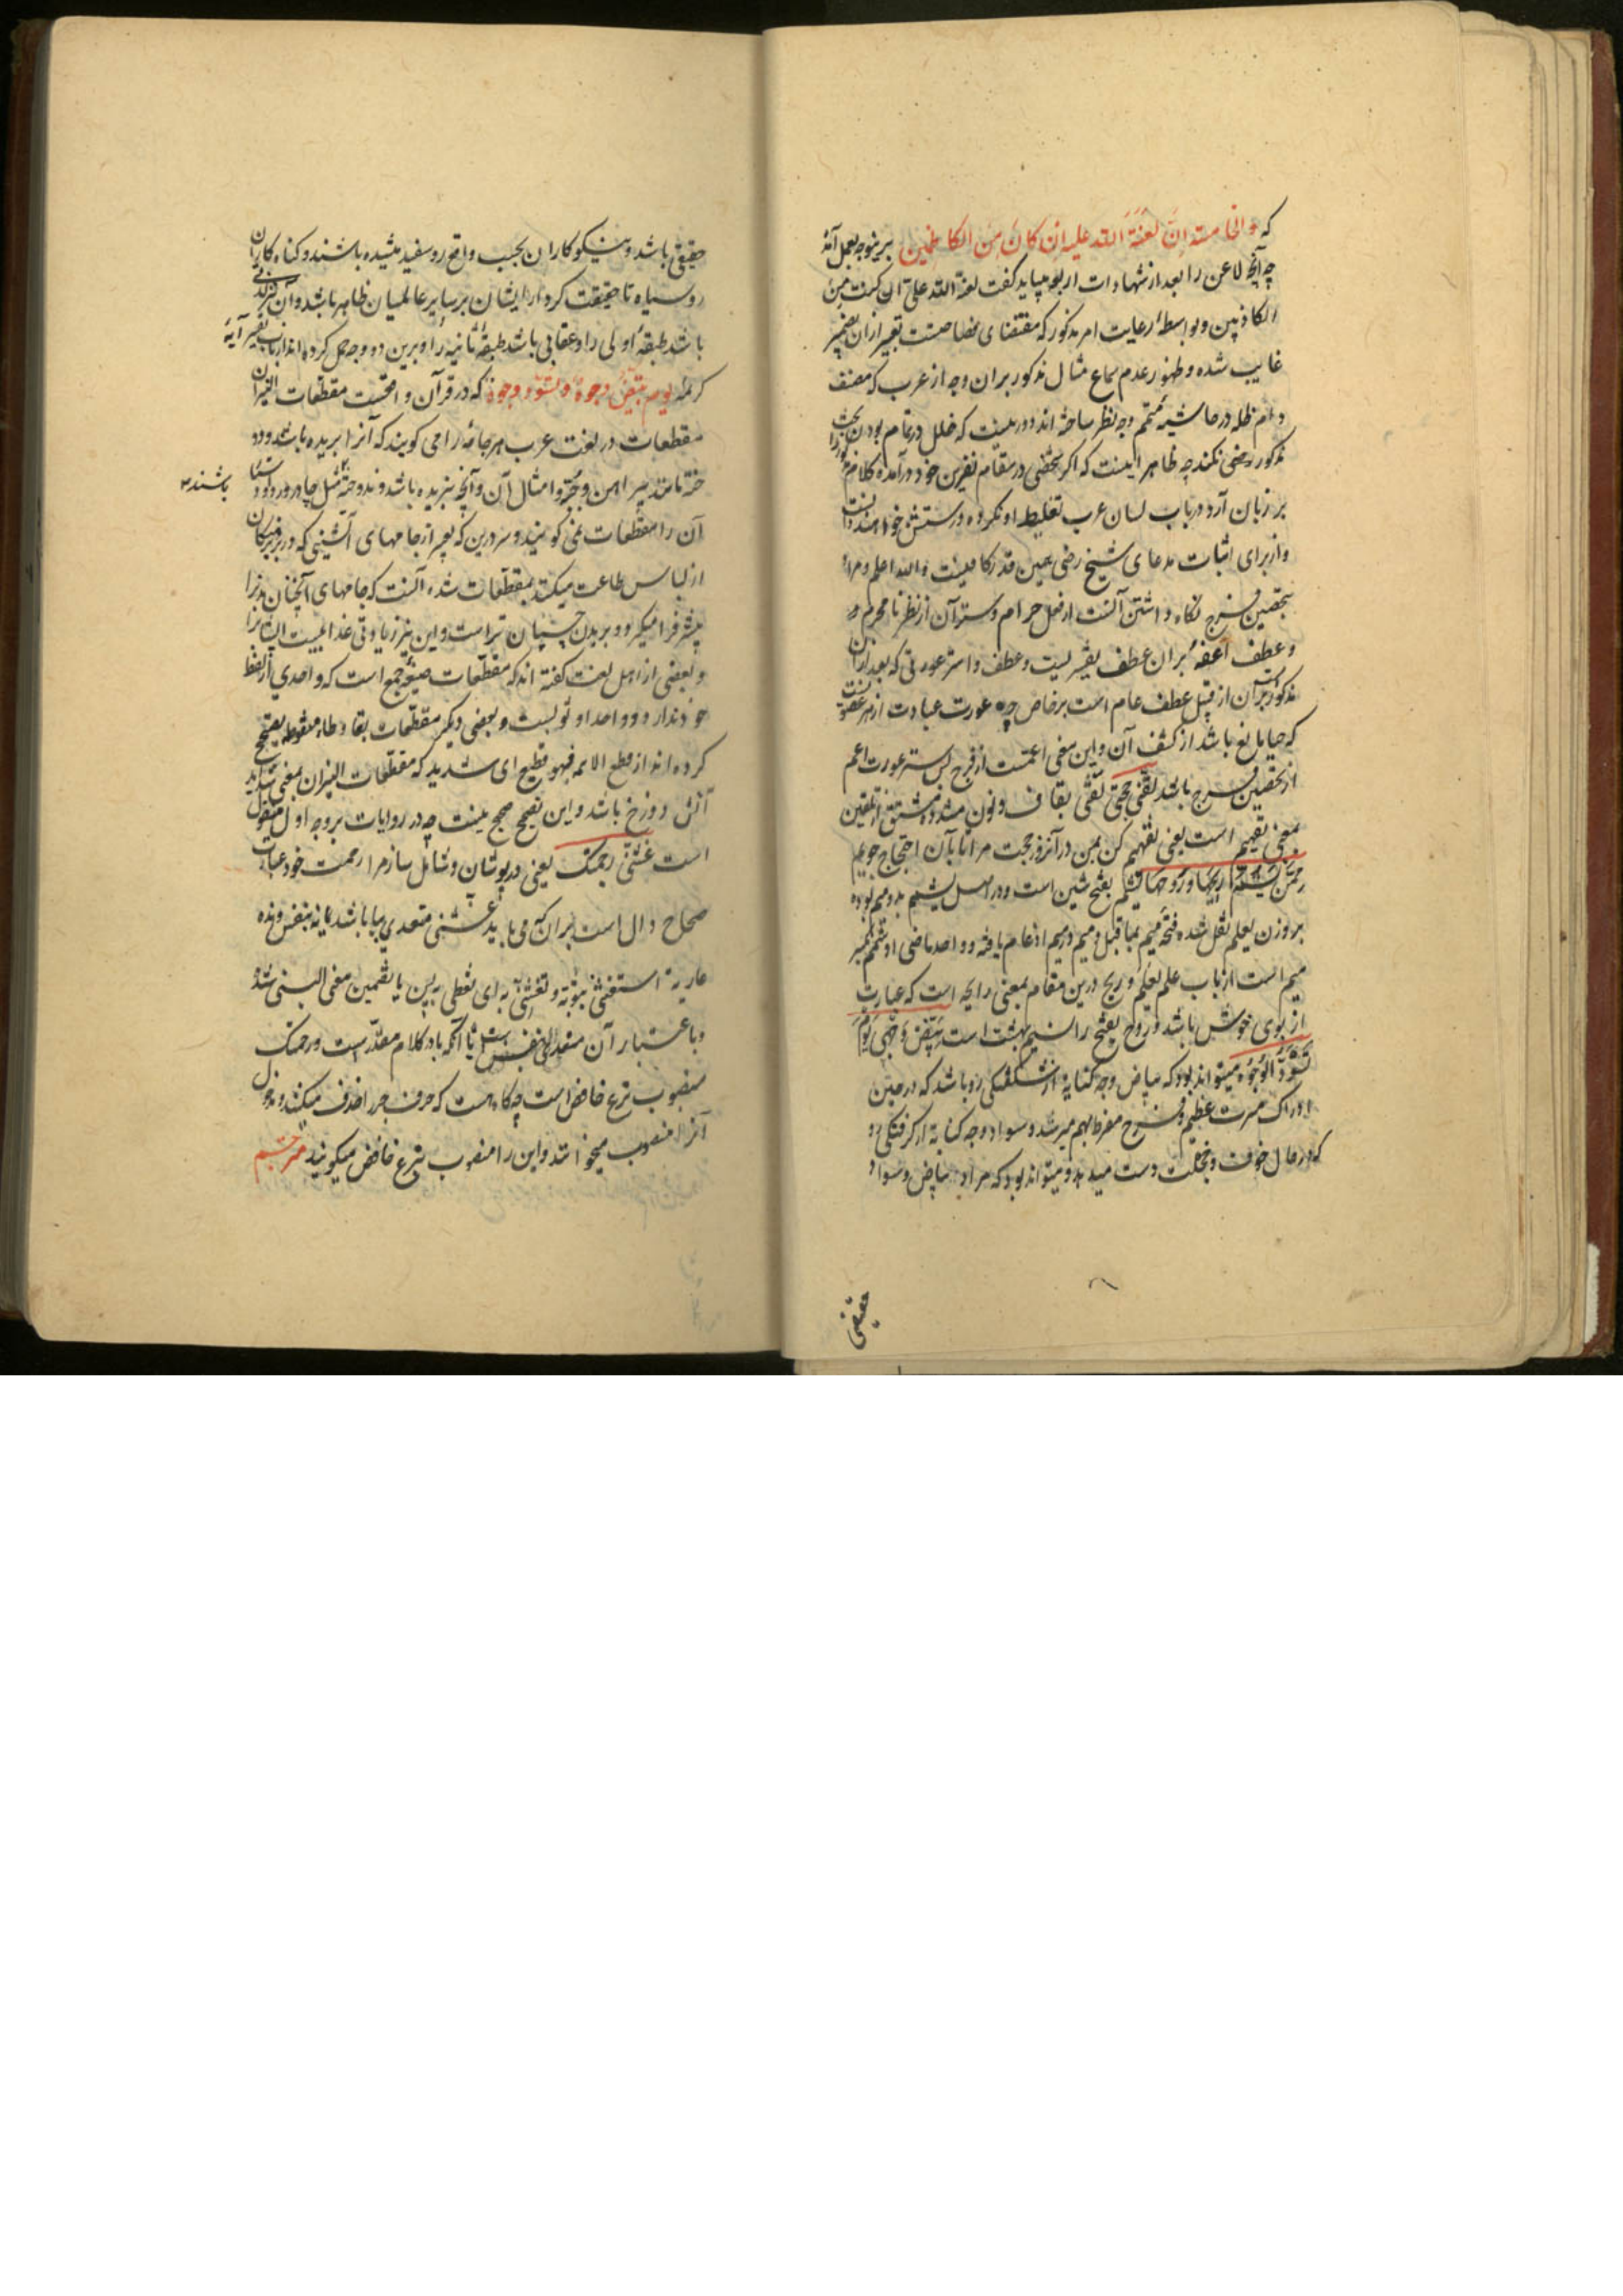 که والخامسة ان لعنة الله علیه ان کان من الکاظمین برینوجه بعمل آمد
چه آنچه لاعن را بعد از شهادات اربع میباید گفت لعنة الله علی ان کنت من
الکاذبین و بواسطهٔ رعایت امر مذکور که مقتضای مضا تعبیر ازان بضمیر
غایب شده و ظهور عدم سماع مثال مذکور بران وجه از عرب که مصنف
دام ظله در حاشیه متمم وجه نظر ساخته اند دور نیست که خلل در تمام بودن بحث
مذکور رضی نکند چه ظاهر اینست که اگر شخصی در مقام نفرین خود درآمده کلام مزبور را
بر زبان آرد درباب لسان عرب تغلیط او نکرده درستش خواهند دانست
و از برای اثبات مدعای شیخ رضی همین قدر کافیست والله اعلم و مراد
بتحصین فرج نگاه داشتن آنست از فعل حرام و ستر آن از نظر نامحرم و
و عطف اعفه بران عطف تفسیریست و عطف واستر عورتی که بعد ازان
مذکور بران از قبیل عطف عام است بر خاص چه عورت عبارت از هر عضویست
که حیا مانع باشد از کشف آن و این معنی اعمست از فرج پس ستر عورت اعم
از تحصین فرج باشد لقنی حجتی لقنی بقاف و نون مشدد مشتق از تلقین
بمعنی تفهیم است یعنی تفهیم کن بمن در آنروز حجت مرا تا بآن احتجاج جویم
ممن یشم ریحها و روحها یشم بفتح شین است و در اصل یشمم بدو میم بوده
بر وزن یعلم نقل شده فتحه میم بما قبل و میم در میم ادغام یافته و واحد ماضی او شمم بکسر
میم است از باب علم یعلم و ریح درین مقام بمعنی رایحه است که عبارت
از بوی خوش باشد و روح بفتح را نسیم بهشت است بیض وجهی یوم
تسود الوجوه میتواند بود که بیاض وجه کنایه از شکفتگی رو باشد که در حین
ادراک مسرت عظیم و فرح مفرط بهم میرسد و سواد وجه کنایه از گرفتگی رو
که در حال خوف و خجلت دست میدهد و میتواند بود که مراد بیاض و سواد
حقیقی
حقیقی باشد و نیکوکاران بحسب واقع رو سفید شده باشند و گناه کاران
روسیاه تا حقیقت کردار ایشان بر سایر عالمیان ظاهر باشد و آن
باشد طبقهٔ اولی را و عقابی باشد طبقهٔ ثانیه را و برین دو وجه حمل کرده اند ارباب تفسیر آیهٔ
کریمه یوم تبیض وجوه و تسود وجوه که در قرآن واقعست مقطعات النیران
مقطعات در لغت عرب هر جامهٔ را می گویند که آنرا بریده باشند و دو
خته مانند پیراهن و جبه و امثال آن و آنچه نبریده باشند و ندوخته مثل چادر و ردا
باشند
آن را مقطعات نمی گویند و سر درین که تعبیر از جامهای آتشینی که در بر
از لباس طاعت میکنند بمقطعات شده آنست که جامهای آنچنان بدن را
بیشتر فرا میگیرد و بر بدن چسپان تر است و این نیز زیادتی عذابیست ایشان را
و بعضی از اهل لغت گفته اند که مقطعات صیغه جمع است که واحدی از لفظ
خود ندارد و واحد او ثوبست و بعضی دیگر مقطعات بقا و طاء منقوطه تصحیح
کرده اند از فظع الامر فهو فظیع ای شدید که مقطعات النیران بمعنی شداید
آتش دوزخ باشد و این تصحیح صحیح نیست چه در روایات بر وجه اول منقول
است غشنی رحمتک یعنی در پوشان و شامل ساز مرا رحمت خود عبارت
صحاح دال است بران که می باید غشنی متعدی ببا باشد نه بنفس و نده
عاریة استغشی بثوبه و تغشی به ای تغطی به پس یا تضمین معنی البسنی شده
و باعتبار آن متعدی بنفس است یا آنکه با در کلام مقدر است و رحمتک
منصوب بنزع خافض است چه گاه هست که حرف جر را حذف میکنند و مدخول
آنرا منصوب میخوانند و این را منصوب بنزع خافض میگویند مترجم